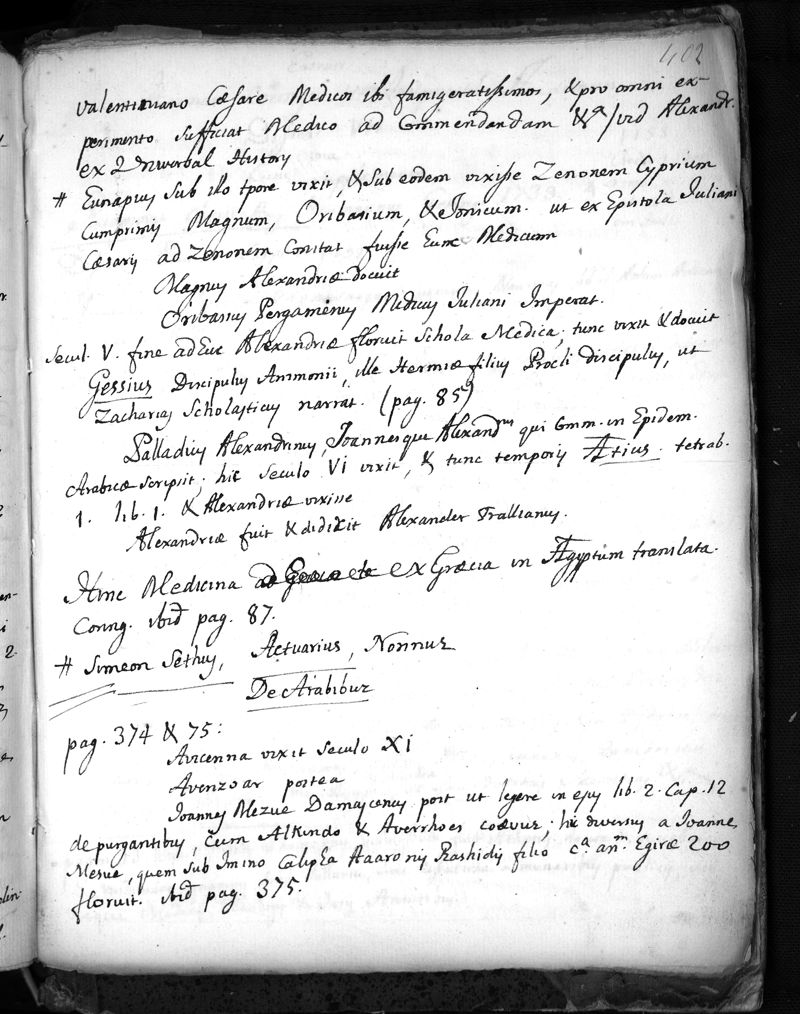 402
Valentiniano Cæsare Medicos ibi famigeratissimos, & pro omni ex-
perimento sufficiat Medico ad Commendandam &a / vid Alexandr.
ex Universal History
# Eunapius sub illo tpore vixit, & sub eodem vixisse Zenonem Cyprium
Cumprimis Magnum, Oribasium, & eJonicum. ut ex Epistola Juliani
Cæsaris ad Zenonem Constat fuisse Eunc Medicum
Magnus Alexandriæ docuit
Oribasius Pergamenus Medicus Juliani Imperat.
Secul. V. fine adEuc Alexandriæ floruit Schola Medica; tunc vixit & docuit
Gessius Discipulus Ammonii, ille Hermiæ filius Procli discipulus, ut
Zacharias Scholasticus narrat. (pag. 85)
Palladius Alexandrinus, Joannesque Alexandrus qui Comm. in Epidem.
Arabicæ scripsit; hic seculo VI vixit, & tunc temporis Ætius. tetrab.
1. lib. 1. & Alexandriæ vixisse
Alexandriæ fuit & didixit Alexander Trallianus.
Hinc Medicina ex Græcia in Ægyptum translata.
Conng. ibid pag. 87.
# Simeon Sethus, Actuarius, Nonnus
De Arabibus
pag. 374 & 75:
Avicenna vixit Seculo XI
Avenzoar postea
Joannes Mezue Damascenus post ut legere in ejus lib. 2. Cap. 12
de purgantibus, cum Alkindo & Averrhoes coævus; hic diversus a Joanne
Mesue, quem sub Imino CalipEa Aaaronis Rashidis filio ca. anm. Egiræ 200
floruit. ibid pag. 375.